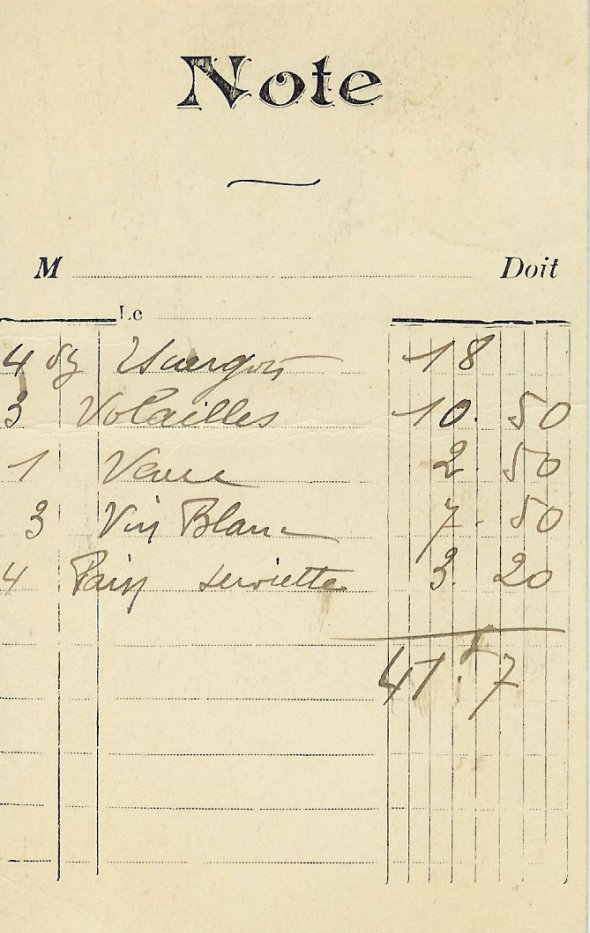 Note
M Doit
Le
4 dz Escargots 18
3 Volailles 10. 50
1 Veau 2. 50
3 Vin Blanc 7. 50
4 Pain serviette 3. 20
41.7